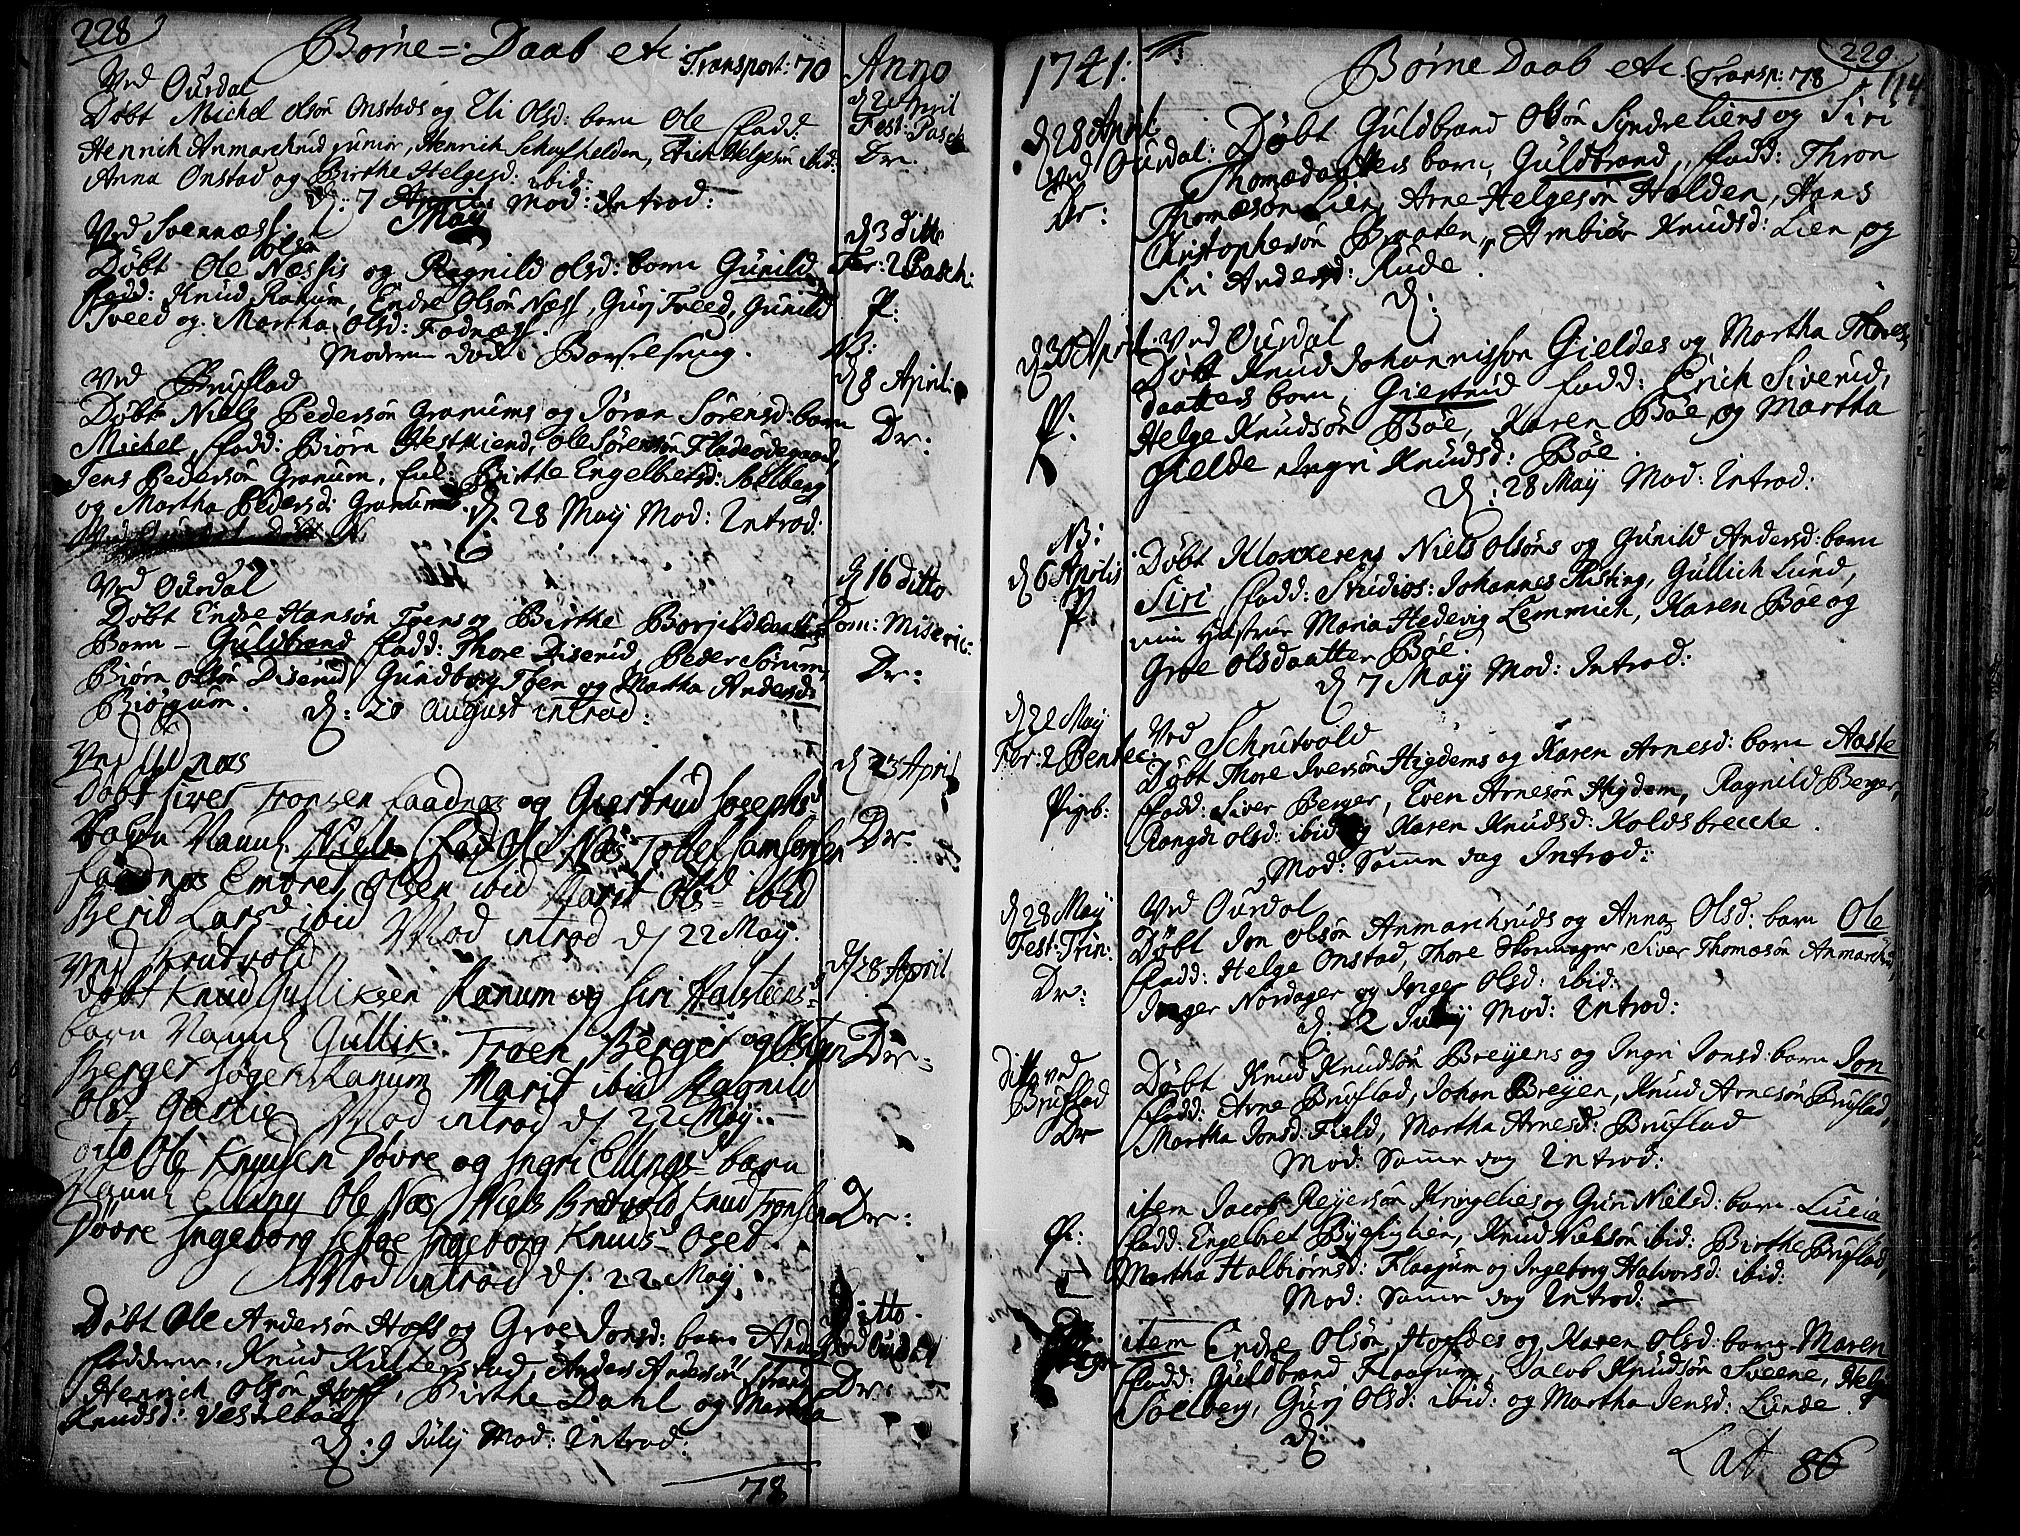 228
Børne=Daab etc Transport: 70
Anno
Ved Ourdal
Døbt Michel Olsøn Onstads og Eli Olsd: barn Ole fadd:
Henrich Anmarchrud junior, Henrich Schysthelden, Erich Helgesøn ibid:
Anna Onstad og Birthe Helgesd: ibid:
d: 7 May Mod: Introd:
d 2 April
Fest: Pasch
Dr:
Ved Svennæss:
Døbt Ole Olsøn Næssis og Ragnild Olsd: barn Gunild
fadd: Knud Ranum, Endre Olsøn Næss, Gurj Tveed, Gunild
Tveed og Martha Olsd: Fodnæss.
Moderen død i Barselseng.
d 3 ditto
Fer: 2 Pasch:
P:
NB:
Ved Bruflad
Døbt Niels Pedersøn Granums og Jøran Sørensd: barn
Michel, fadd: Biørn Hestkiend, Ole Sørensøn Fladeødegaard,
Jens Pedersøn Granum, Birthe Engelbretsd: Solberg
og Martha Pedersd: Granum
d: 28 Maij Mod: Introd:
d 8 Aprili
Dr:
Ved Ourdal
Døbt Endre Hansøn Toens og Birthe Borjildsdaatters
Barn - Guldbrand fadd: Thore Diserud, Peder Sørum,
Biørn Olsøn Diserud, Gundborg Toen og Martha Andersd:
Biørgum. d: 20 August introd:
d 16 ditto
Dom: Miseric:
Dr:
Ved Ulnæs
Døbt Siver Tronsen faadnæs og Giertrud Josephsd
Barn Naunl Niels fad Ole Næs Tostel Samsonsen
faadnæs Embret Olsen ibid Marit Olsd ibid
Berit Larsd ibid Mod introd d 22 Maij.
d 23 April
Dr:
Ved Skrutvold
Døbt Knud Gulliksen Ranum og Siri Halsteensd
barn Naunl Gullik. Troen Berger og Østen
Berger Ranum Marit ibid Ragnild
Olsd Mod introd d 22 Maij.
d 28 April
Dr:
Ole Knudsen Døvre og Ingri Ellingsd barn
Naunl Elling Ole Næs Niels Brøtvold Knud Tronsen
Døvre Ingeborg Ingeborg Knudsd Oset
Mod introd d. 22 Maij.
Dr:
Døbt Ole Andersøn Hofs og Groe Jonsd: barn Anders
Fadderne, Knud Andersøn Strand,
Henrich Olsøn Hoff, Birthe Dahl og Martha
Knudsd:
d: 9 Julij Mod: Introd:
Ditto
Ved Ourdal
Dr:
78
1741:
Børne Daab etc Transp: 78
229
114
d 28 April
Ved Ourdal:
Dr:
Døbt Guldbrand Olsøn Syndreliens og Siri
Thomædaatters barn, Guldbrand, fadd: Thron
Thomæsøn Lien, Arne Helgesøn Halden, Hans
Christophersøn Braaten, Ambiør Knudsd: Lien og
Siri Andersd: Rude.
d:
d 30 April
P:
Ved Ourdal
Døbt Knud Johannissøn Gieldes og Martha Thores
daatters barn, Giertrud fadd: Erich Siverud,
Helge Knudsøn Bøe, Karen Bøe og Martha
Gielde Ingri Knudsd: Bøe.
d: 28 Maij Mod: Introd:
NB:
d 6 Aprilis
P:
Døbt Klokkerens Niels Olsøns og Gunild Andersd: barn
Siri fadd: Studios: Johannes Risting, Gullich Lund,
min Hustrue Maria Hedevig Lemmich, Karen Bøe og
Groe Olsdaatter Bøe.
d 7 Maij Mod: Introd:
d 22 Maij
Fer: 2 Pentec:
Pigeb:
Ved Schrutvold
Døbt Thore Iversøn Higdems og Karen Arnesd: barn Aaste
fadd: Siver Berger, Even Arnesøn Higdem, Ragnild Berger,
Rangdi Olsd: ibid og Karen Knudsd: Koldsbrecche.
Mod: Samme dag Introd:
d 28 Maij
Fest: Trin:
Dr:
Ved Ourdal
Døbt Jon Olsøn Anmarchruds og Anna Olsd: barn Ole
fadd: Helge Onstad, Thore Hornager, Siver Thomæsøn Anmarchrud,
Inger Nordager og Inger Olsd: ibid:
d: 2 Julij Mod: Introd:
ditto ved
Bruflad
Dr
Døbt Knud Knudsøn Breijens og Ingri Jonsd: barn Jon
fadd: Arne Bruflad, Johan Breijen, Knud Arnesøn Bruflad,
Martha Jonsd: Field, Martha Arnesd: Bruflad
Mod: Samme dag Introd:
item Jacob Reijersøn Kringelies og Guri Nielsd: barn Lucia
fadd: Engelbret Bygliglien, Knud Nielsøn ibid: Birthe Bruflad,
Martha Halbiørnsd: Flaagum og Ingeborg Halvorsd: ibid:
Mod: Samme dag Introd:
item Endre Olsøn Hofdes og Karen Olsd: barn Maren
fadd: Guldbrand Flaagum, Jacob Knudsøn Sveene, Helge
Solberg, Gurj Olsd: ibid: og Martha Jensd: Lunde.
d:
Lat 86